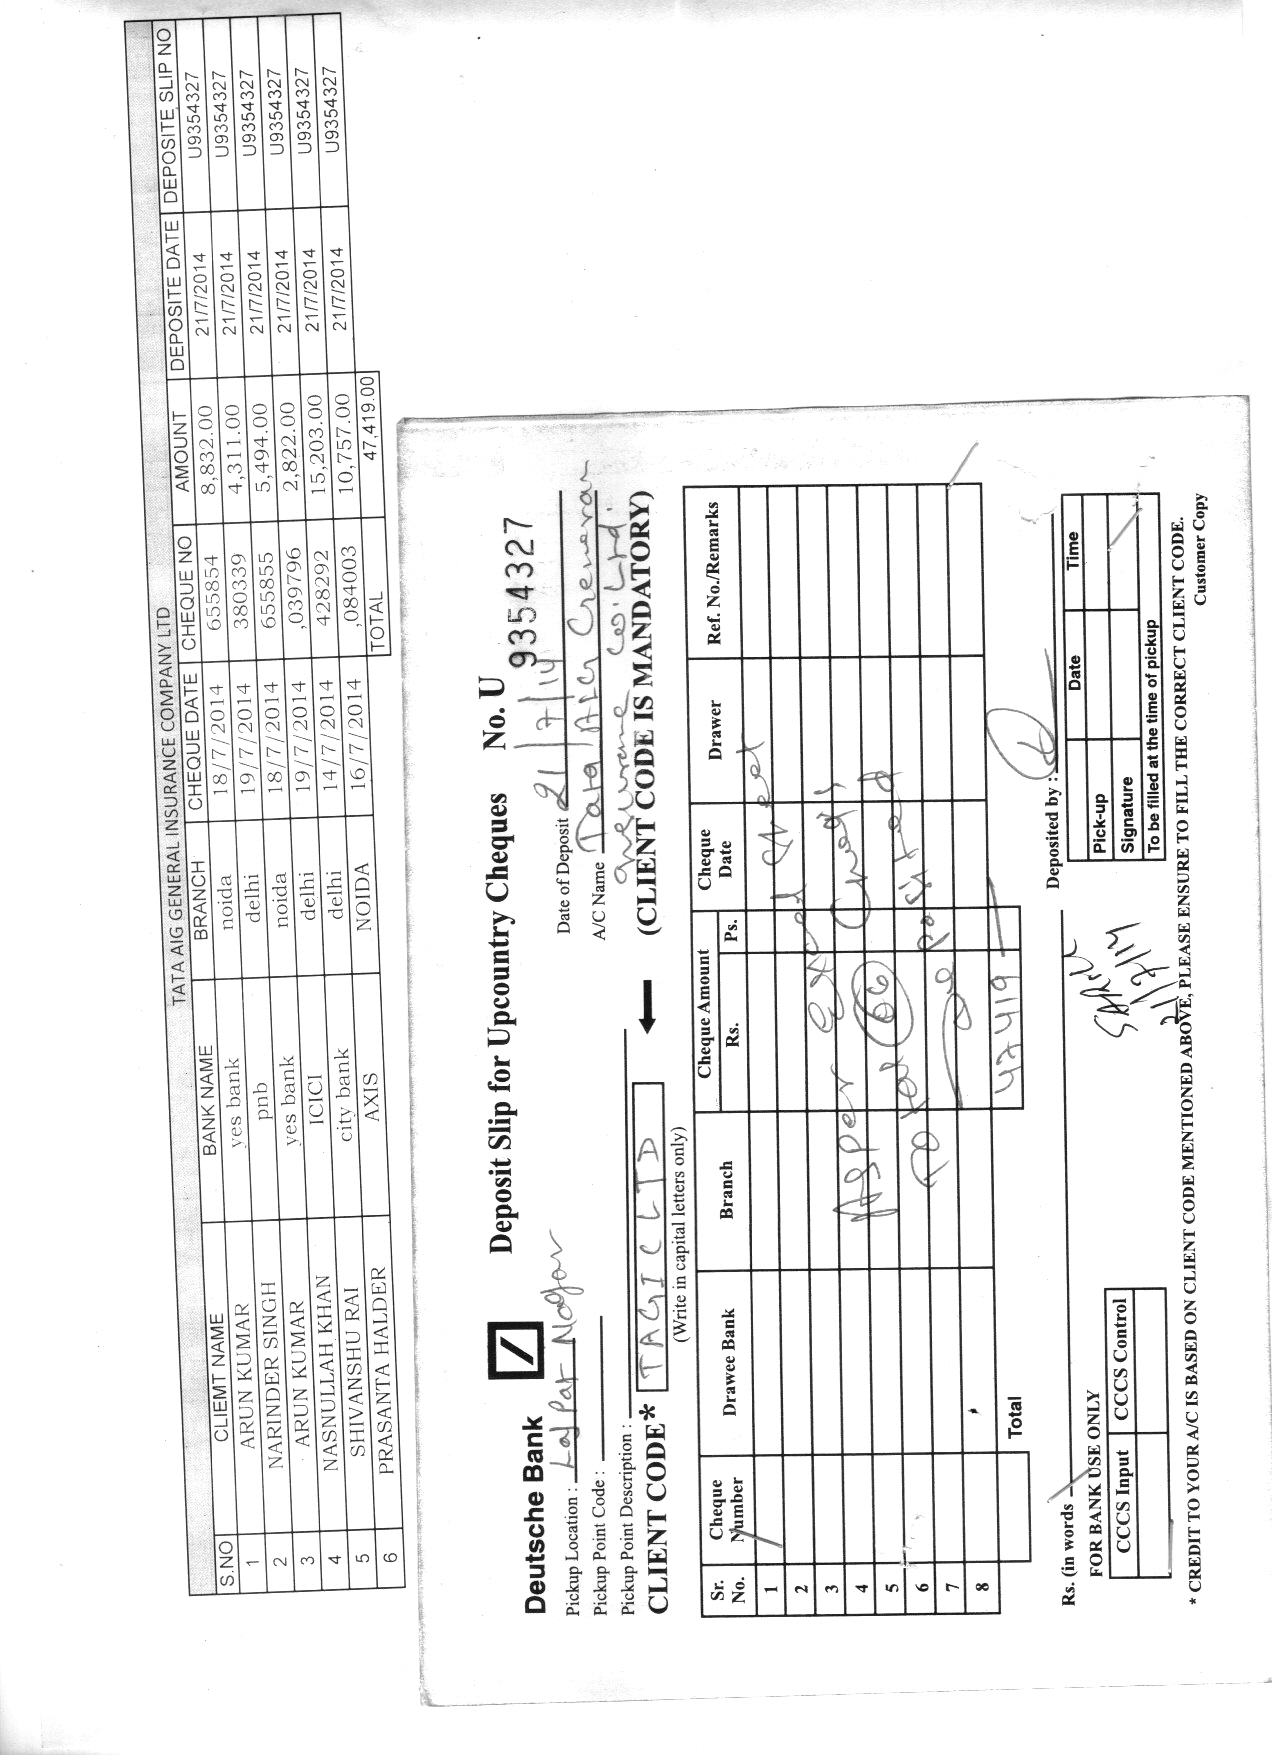 TATA AIG GENERAL INSURANCE COMPANY LTD
S.NO CLIEMT NAME BANK NAME BRANCH CHEQUE DATE CHEQUE NO AMOUNT DEPOSITE DATE DEPOSITE SLIP NO
1 ARUN KUMAR yes bank noida 18/7/2014 655854 8,832.00 21/7/2014 U9354327
2 NARINDER SINGH pnb delhi 19/7/2014 380339 4,311.00 21/7/2014 U9354327
3 ARUN KUMAR yes bank noida 18/7/2014 655855 5,494.00 21/7/2014 U9354327
4 NASNULLAH KHAN ICICI delhi 19/7/2014 ,039796 2,822.00 21/7/2014 U9354327
5 SHIVANSHU RAI city bank delhi 14/7/2014 428292 15,203.00 21/7/2014 U9354327
6 PRASANTA HALDER AXIS NOIDA 16/7/2014 ,084003 10,757.00 21/7/2014 U9354327
TOTAL 47,419.00
Deutsche Bank Deposit Slip for Upcountry Cheques No. U 9354327
Pickup Location : Lajpat Nagar Date of Deposit 21/7/14
Pickup Point Code : A/C Name Tata AIG General
Pickup Point Description : Insurance Co. Ltd.
CLIENT CODE* TAGICLTD (CLIENT CODE IS MANDATORY)
(Write in capital letters only)
Sr. No. Cheque Number Drawee Bank Branch Cheque Amount Rs. Ps. Cheque Date Drawer Ref. No./Remarks
1
2
3
4
5
6
7
8
As per Excel sheet
total 06 cheq's
deposited
Total 47419
Rs. (in words Deposited by :
FOR BANK USE ONLY
CCCS Input CCCS Control
21/7/14
Date Time
Pick-up
Signature
To be filled at the time of pickup
* CREDIT TO YOUR A/C IS BASED ON CLIENT CODE MENTIONED ABOVE, PLEASE ENSURE TO FILL THE CORRECT CLIENT CODE.
Customer Copy